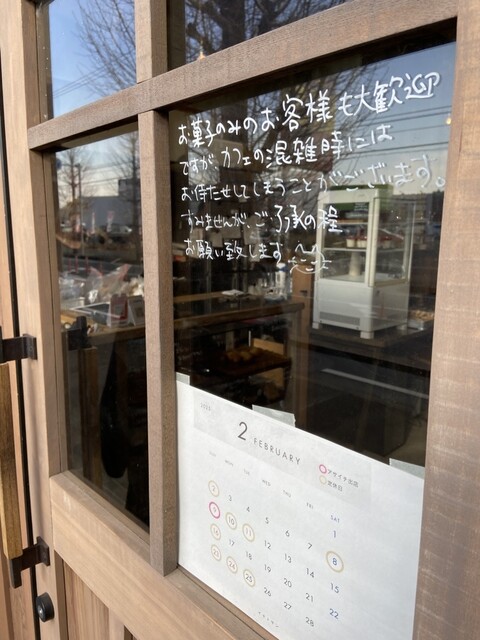 お菓子のみのお客様も大歓迎
ですが カフェの混雑時には
お待たせしてしまうことがございます。
すみませんが、ご了承の程
お願い致します
2 FEBRUARY
定休日
SUN MON TUE WED THU FRI SAT
1
2 3 4 5 6 7 8
9 10 11 12 13 14 15
16 17 18 19 20 21 22
23 24 25 26 27 28